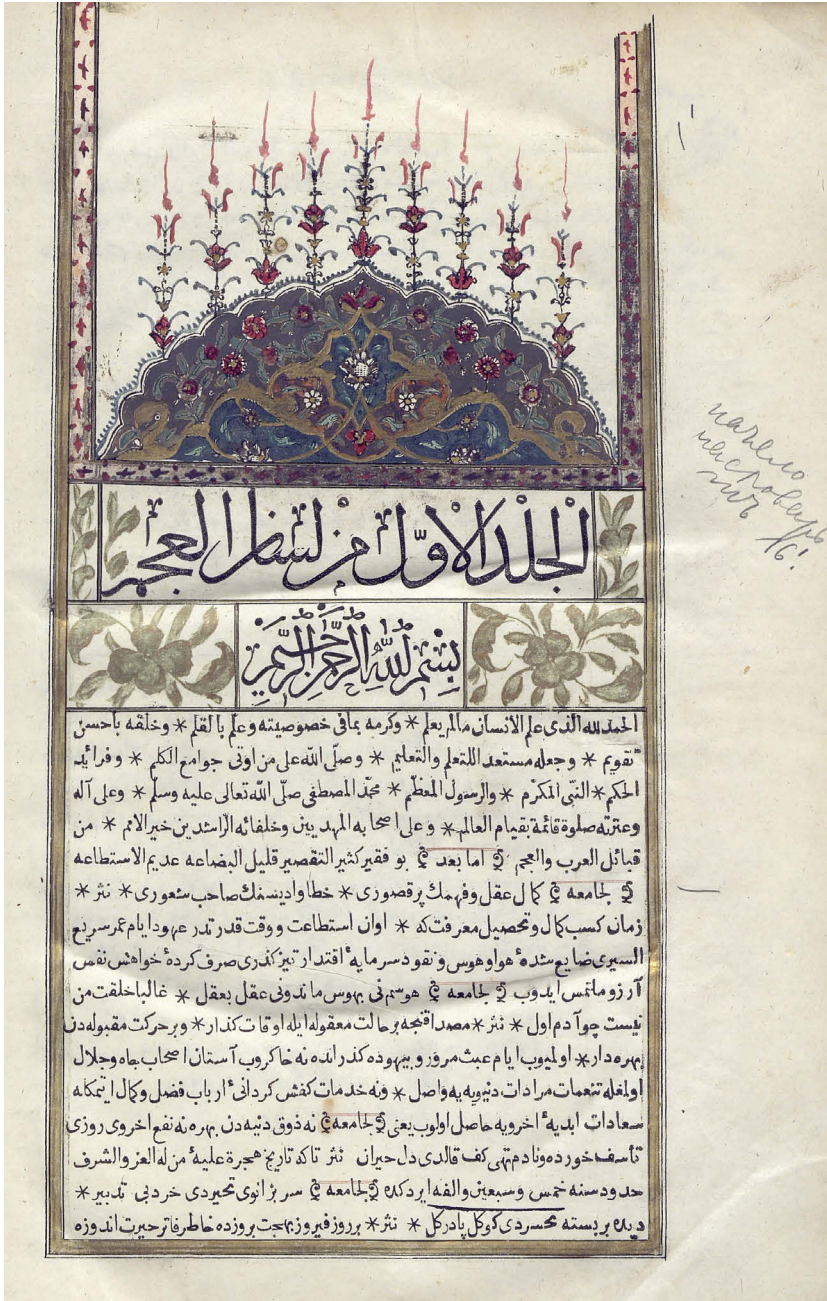 الجلد الاول من لسان العجم
بسم الله الرحمن الرحيم
الحمد لله الذى علم الانسان مالم يعلم * وكرمه بمافى خصوصيته وعلم بالقلم * وخلقه باحسن
تقويم * وجعله مستعدا للتعلم والتعليم * وصلى الله على من اوتى جوامع الكلم * وفرائد
الحكم * النبى المكرم * والرسول المعظم * محمد المصطفى صلى الله تعالى عليه وسلم * وعلى آله
وعترته صلوة قائمة بقيام العالم * وعلى اصحابه المهديين وخلفائه الراشدين خير الامم * من
قبائل العرب والعجم اما بعد بو فقير كثير التقصير قليل البضاعه عديم الاستطاعه
لجامعه كمال عقل وفهمك پر قصورى * خطا وادينك صاحب شعورى * نثر *
زمان كسب كمال وتحصيل معرفت كه * اوان استطاعت ووقت قدرتدر عهود ايام عمر سريع
السيرى ضايع شدهٔ هوا وهوس ونقود سرمايهٔ اقتدار تيز كذرى صرف كردهٔ خواهش نفس
آرزو ملتمس ايدوب لجامعه هوسم نى بهوس ماندونى عقل بعقل * غالبا خلقت من
نيست چو آدم اول * نثر * مصداقنجه بر حالت معقوله ايله اوقات كذار * وبر حركت مقبوله دن
بهره دار * اولميوب ايام عبث مرور وبيهوده كذر انده نه خاكروب آستان اصحاب جاه وجلال
اولمغله تنعمات مرادات دنيويه يه واصل * ونه خدمات كفش كردانى ارباب فضل وكمال ايتمكله
سعادات ابديهٔ اخرويه حاصل اولوب يعنى لجامعه نه ذوق دنيه دن بهره نه نفع اخروى روزى
تأسف خورده ونادم تهى كف قالدى دل حيران نثر تاكه تاريخ هجرة عليهٔ من له العز والشرف
حدود سنه خمس وسبعين والفه ايردكده لجامعه سر بزانوى تحيردى خرد بى تدبير *
ديده بر بسته تحسردى كوكل پا در كل * نثر * بر روز فيروز بهجت بروزده خاطر فاتر حيرت اندوزه